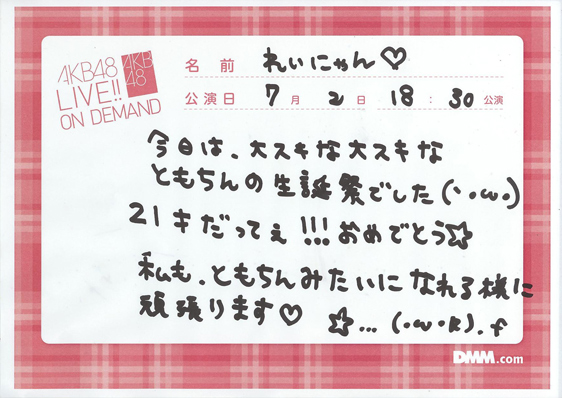 AKB48
LIVE!!
ON DEMAND
AKB
48
名前 れいにゃん♡
公演日 7月2日 18:30公演
今日は、大スキな大スキな
ともちんの生誕祭でした(・ω・)
21才だってぇ!!!おめでとう☆
私も、ともちんみたいになれる様に
頑張ります♡ ☆...(・ω・k).f
DMM.com